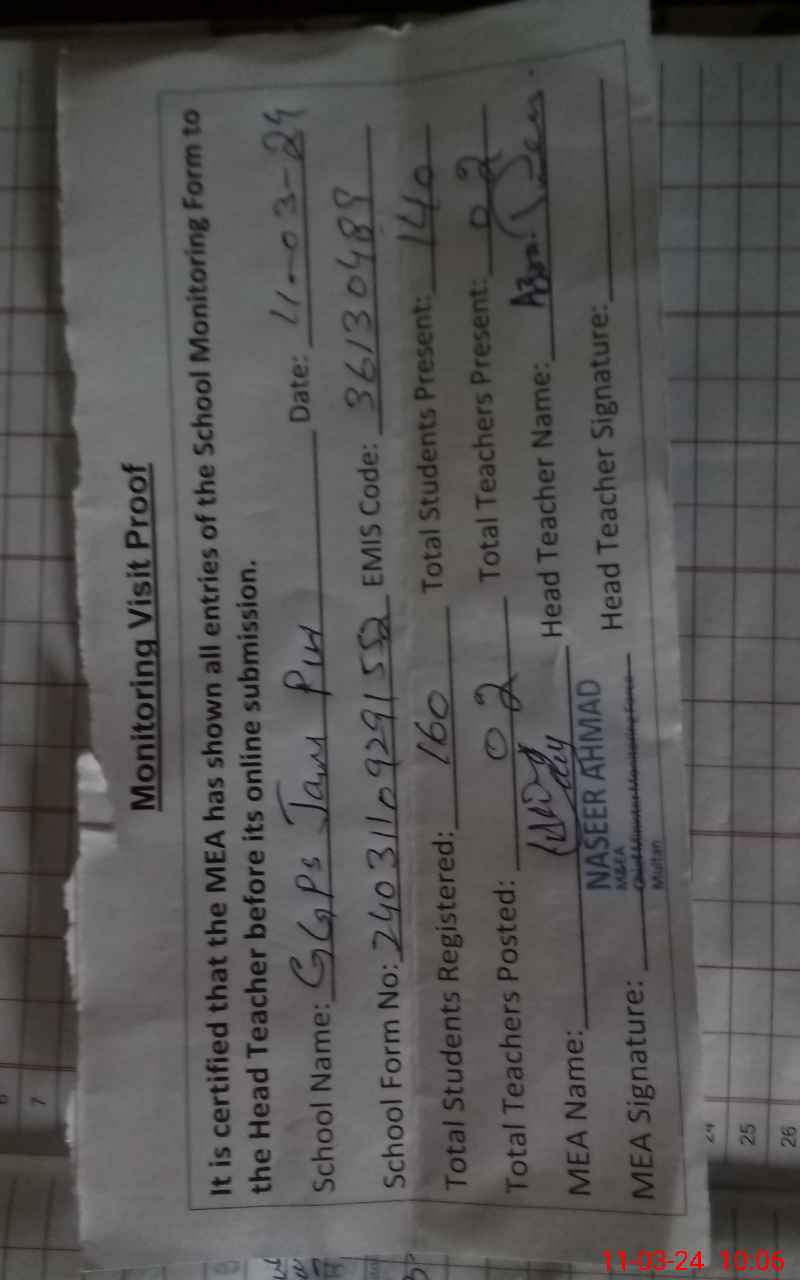 Monitoring Visit Proof
It is certified that the MEA has shown all entries of the School Monitoring Form to
the Head Teacher before its online submission.
School Name: GGPS Jam Pur Date: 11-03-24
School Form No: 24031109291552 EMIS Code: 36130489
Total Students Registered: 160 Total Students Present: 140
Total Teachers Posted: 02 Total Teachers Present: 02
MEA Name: Head Teacher Name:
NASEER AHMAD
M&EA
Chief Minister Monitoring Force
Multan
MEA Signature: Head Teacher Signature:
6
7
24
25
26
11-03-24 10:06